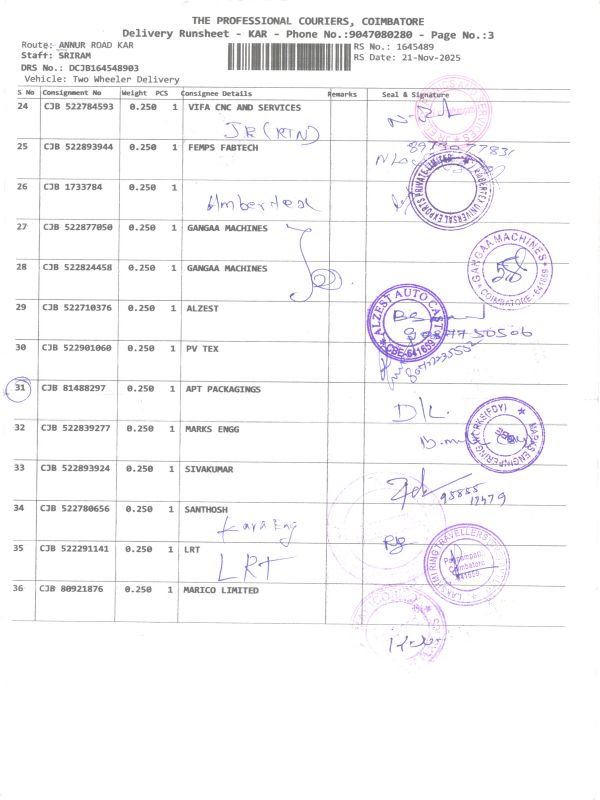 THE PROFESSIONAL COURIERS, COIMBATORE
Delivery Runsheet - KAR - Phone No.:9047080280 - Page No.:3
Route: ANNUR ROAD KAR
RS No.: 1645489
Staff: SRIRAM
RS Date: 21-Nov-2025
DRS No.: DCJB164548903
Vehicle: Two Wheeler Delivery
S No Consignment No Weight PCS Consignee Details Remarks Seal & Signature
24 CJB 522784593 0.250 1 VIFA CNC AND SERVICES
25 CJB 522893944 0.250 1 FEMPS FABTECH
26 CJB 1733784 0.250 1
27 CJB 522877050 0.250 1 GANGAA MACHINES
GANGAA MACHINES
COIMBATORE - 641659
28 CJB 522824458 0.250 1 GANGAA MACHINES
29 CJB 522710376 0.250 1 ALZEST
ALZEST AUTO CAST
CBE-641659
30 CJB 522901060 0.250 1 PV TEX
31 CJB 81488297 0.250 1 APT PACKAGINGS
D/L.
32 CJB 522839277 0.250 1 MARKS ENGG
MARKS ENGINEERING WORKS(FDY)
33 CJB 522893924 0.250 1 SIVAKUMAR
34 CJB 522780656 0.250 1 SANTHOSH
35 CJB 522291141 0.250 1 LRT
LRT
LAKSHMI RING TRAVELLERS
Coimbatore
641659
36 CJB 80921876 0.250 1 MARICO LIMITED